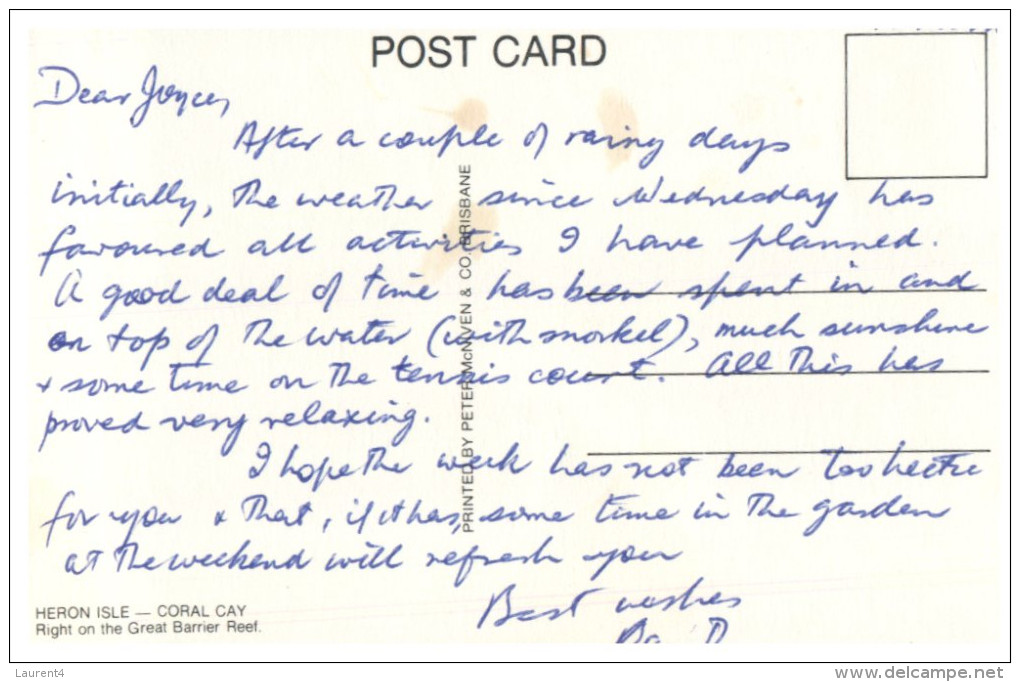 POST CARD
Dear Joyce,
After a couple of rainy days
initially, the weather since Wednesday has
favoured all activities I have planned.
A good deal of time has been spent in and
on top of the water (with snorkel), much sunshine
+ some time on the tennis court. All this has
proved very relaxing.
I hope the week has not been too hectic
for you & that, if it has, some time in the garden
at the weekend will refresh you
Best wishes
PRINTED BY PETER McNIVEN & CO. BRISBANE
HERON ISLE — CORAL CAY
Right on the Great Barrier Reef.
Laurent4
www.delcampe.net